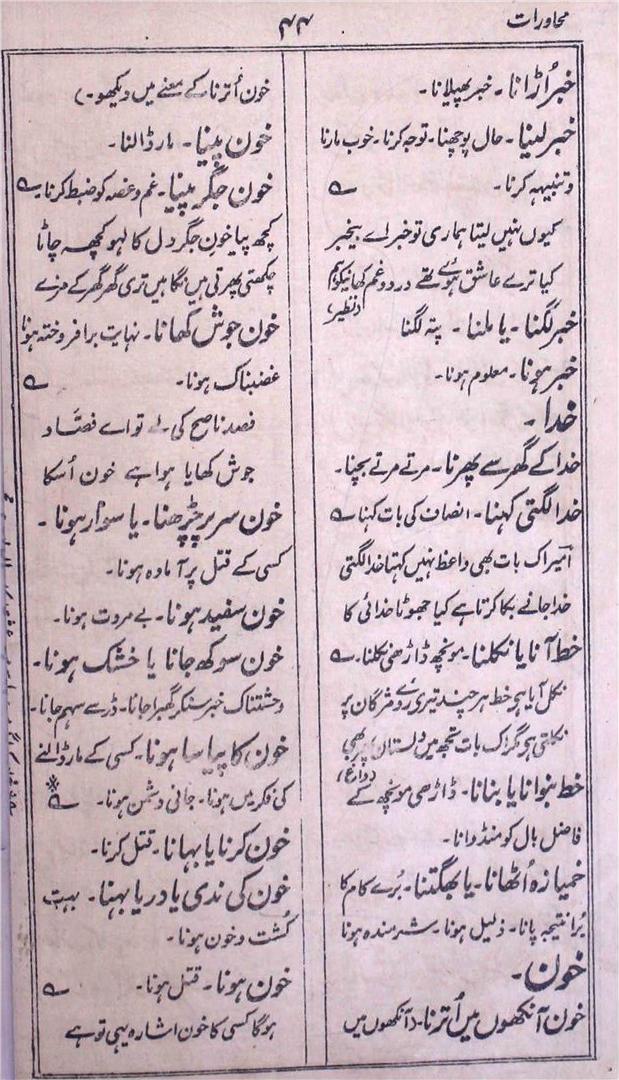 محاورات
۴۴
خبر اُڑانا۔ خبر پھیلانا۔
خبر لینا۔ حال پوچھنا۔ توجہ کرنا۔ خوب مارنا
و تنبیہہ کرنا۔ ؎
کیوں نہیں لیتا ہماری تو خبر اے بیخبر
کیا ترے عاشق ہوئے تھے درد و غم کھانیکو ہم
(نظیر)
خبر لگنا۔ یا ملنا۔ پتہ لگنا
خبر ہونا۔ معلوم ہونا۔
خدا۔
خدا کے گھر سے پھرنا۔ مرتے مرتے بچنا۔
خدا لگتی کہنا۔ انصاف کی بات کہنا ؎
امیر اک بات بھی واعظ نہیں کہتا خدا لگتی
خدا جانے بکا کرتا ہے کیا جھوٹا خدائی کا
خط آنا یا نکلنا۔ مونچھ ڈاڑھی نکلنا۔ ؎
نکل آیا ہی خط ہر چند تیری روے مژگان پر
نکلتی ہی مگر اک بات تجھ میں دلستاں پھر بھی
(داغ)
خط بنوانا یا بنانا۔ ڈاڑھی مونچھ کے
فاضل بال کو منڈوانا۔
خمیازہ اُٹھانا۔ یا بھگتنا۔ بُرے کام کا
بُرا نتیجہ پانا۔ ذلیل ہونا۔ شرمندہ ہونا
خون۔
خون آنکھوں میں اُترنا۔ (آنکھوں میں
خون اُترنا کے معنے میں دیکھو۔)
خون پینا۔ مار ڈالنا۔
خون جگر پینا۔ غم و غصہ کو ضبط کرنا۔ ؎
کچھ پیا خون جگر دل کا لہو کچھ چاٹا
چکھتی پھرتی ہیں نگاہیں تری گھر گھر کے مزے
خون جوش کھانا۔ نہایت برافروختہ ہونا
غضبناک ہونا۔ ؎
فصد ناصح کی لے تو اے فصّاد
جوش کھایا ہوا ہے خون اُسکا
خون سر پر چڑھنا۔ یا سوار ہونا۔
کسی کے قتل پر آمادہ ہونا۔
خون سفید ہونا۔ بے مروت ہونا۔
خون سوکھ جانا یا خشک ہونا۔
وحشتناک خبر سنکر گھبرا جانا۔ ڈر سے سہم جانا۔
خون کا پیاسا ہونا۔ کسی کے مار ڈالنے
کی فکر میں ہونا۔ جانی دشمن ہونا۔ ؎
خون کرنا یا بہانا۔ قتل کرنا۔
خون کی ندی یا دریا بہنا۔ بہت
کُشت و خون ہونا۔
خون ہونا۔ قتل ہونا۔ ؎
ہوگا کسی کا خون اشارہ یہی تو ہے